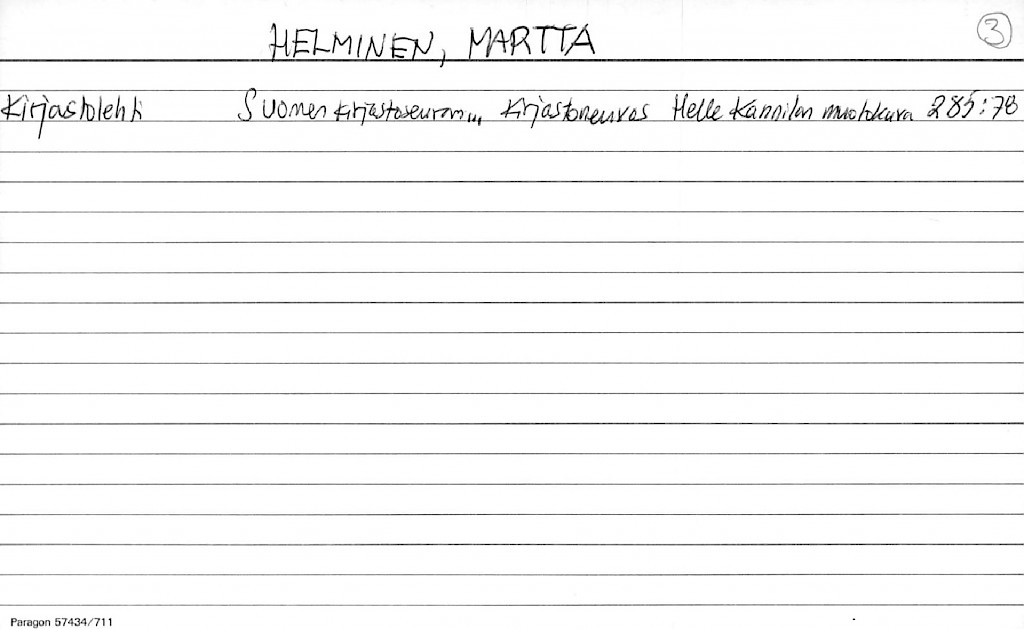 HELMINEN, MARTTA
3
Kirjastolehti Suomen Kirjastoseuran... Kirjastoneuvos Helle Kannilan muotokuva 285:78
Paragon 57434/711